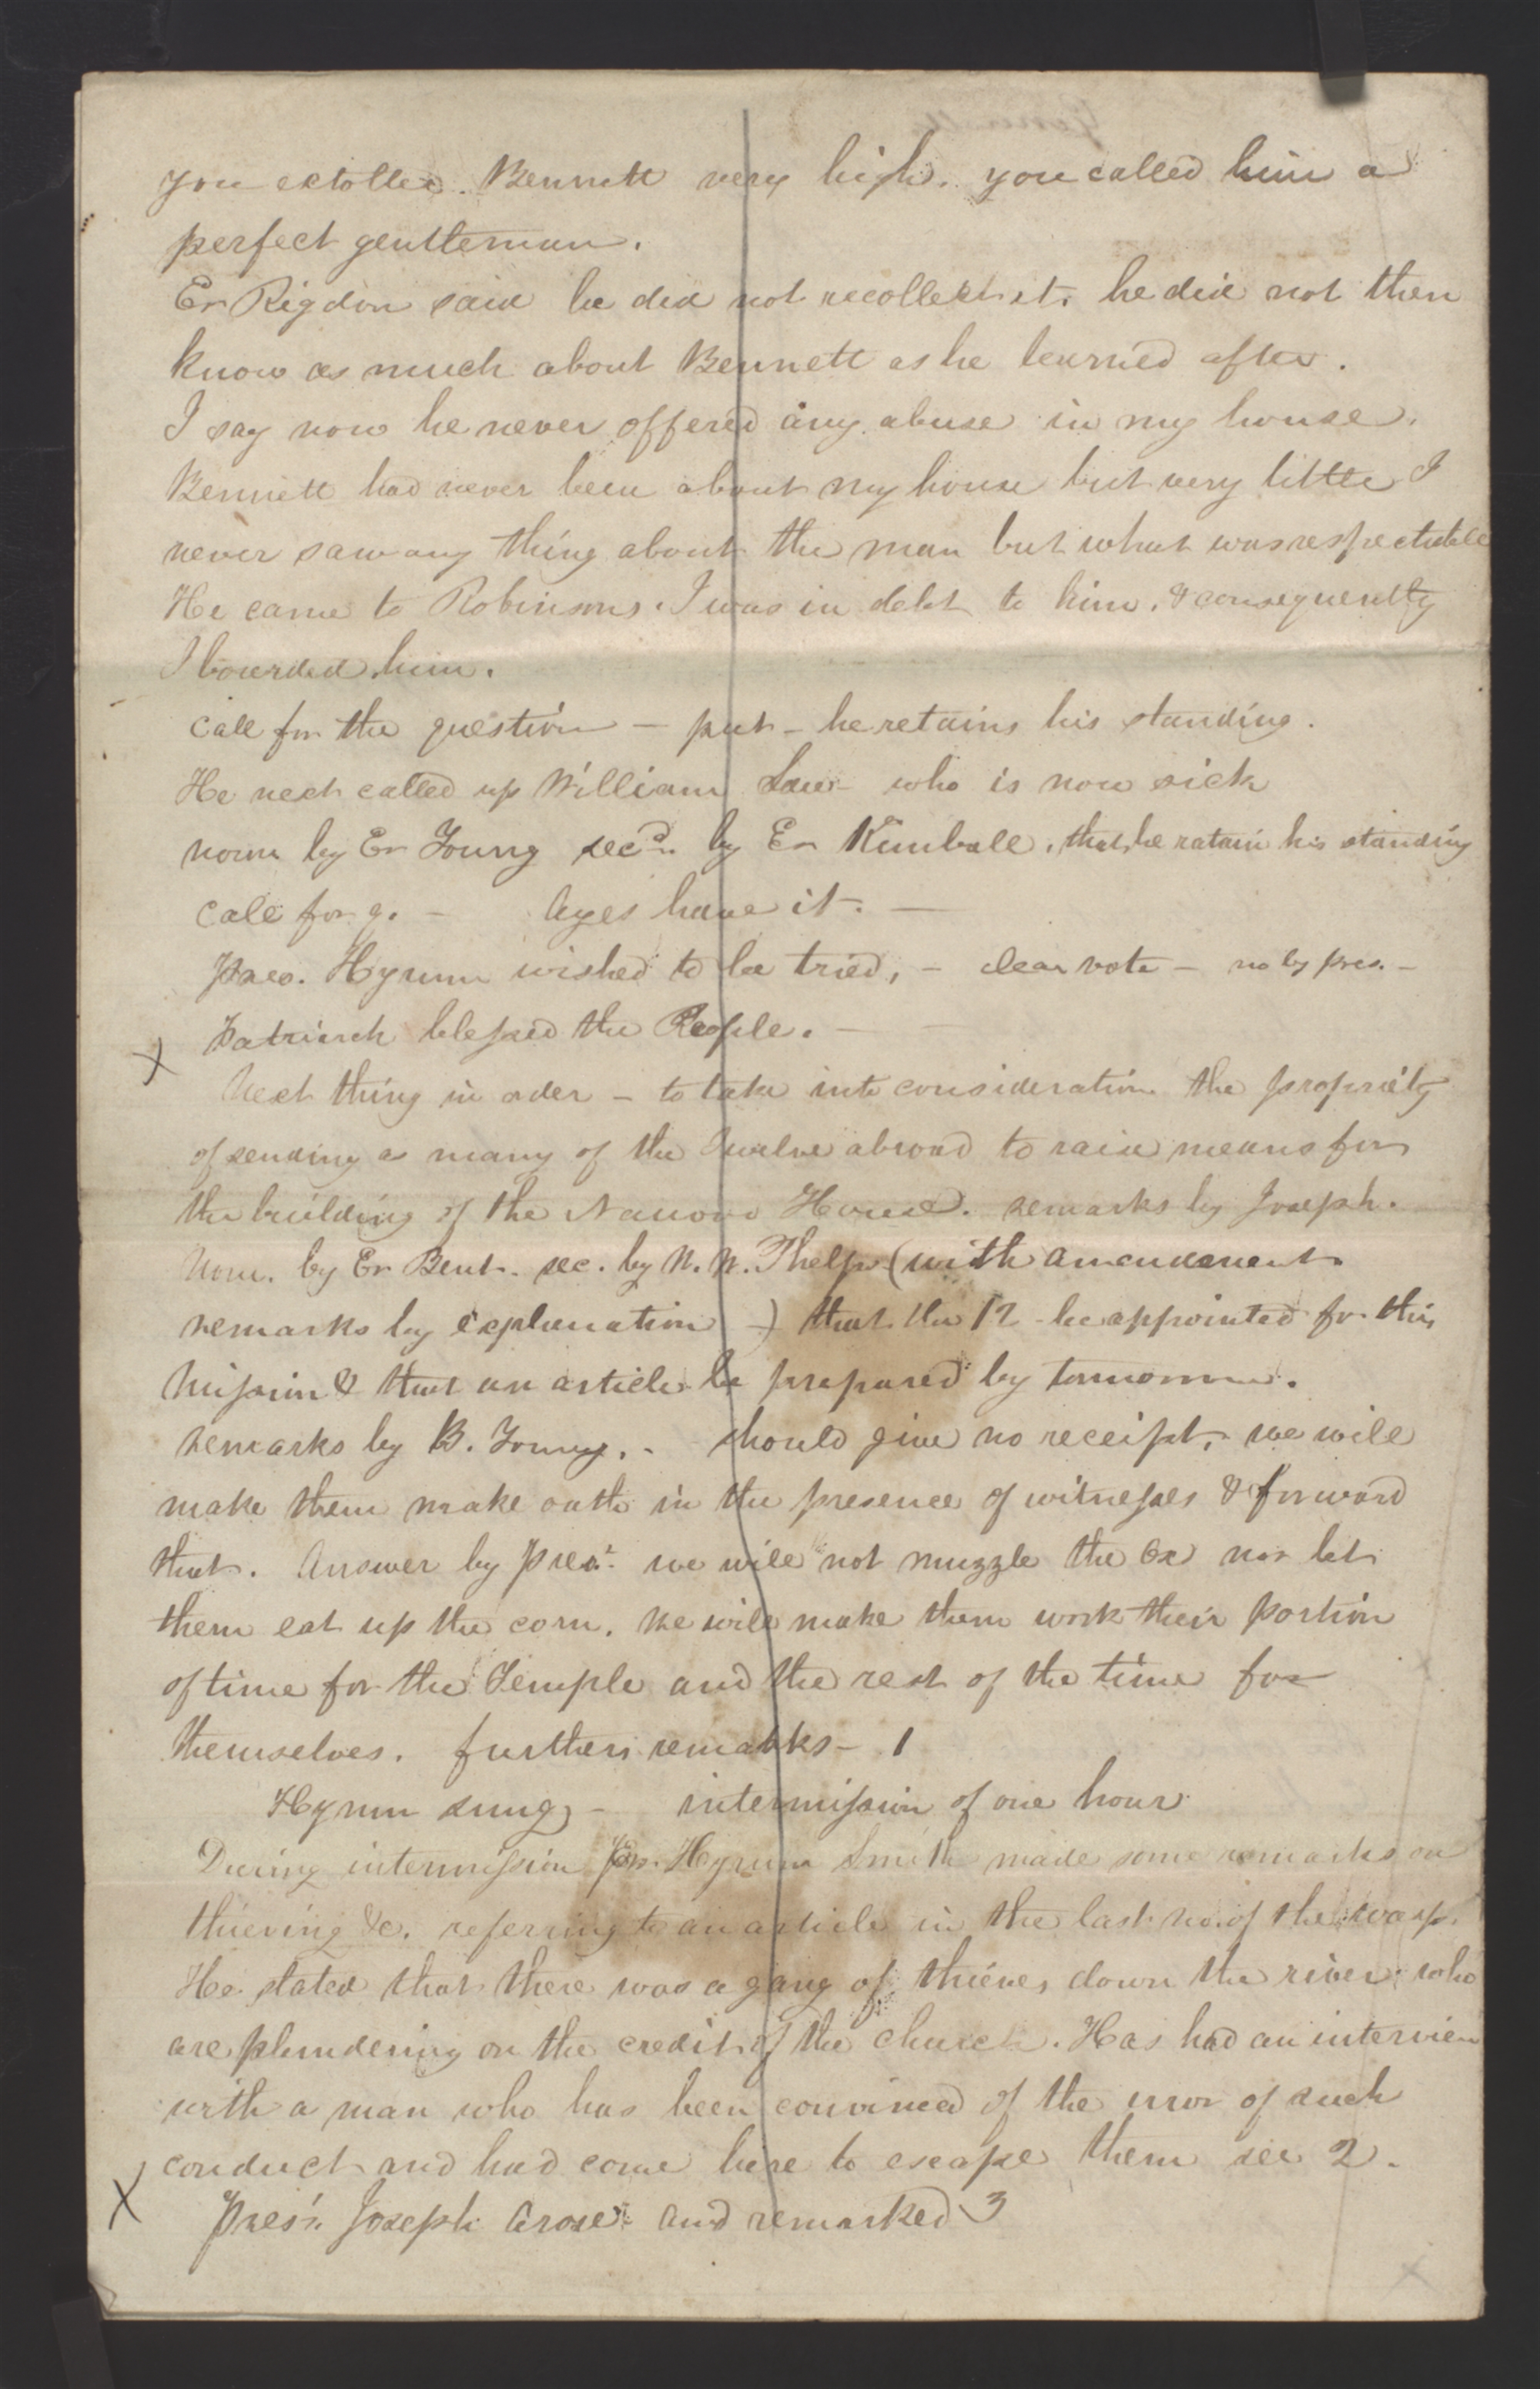 you extolled. Bennett very high. you called him a
perfect gentleman.
Er Rigdon said he did not recollect it. he did not then
know as much about Bennett as he learned after.
I say now he never offered any abuse in my house.
Bennett had never been about my house but very little I
never saw any thing about the man but what was respectable
He came to Robinsons. I was in debt to him. & consequently
I boarded him.
Call for the question — put — he retains his standing.
He next called up William Law — who is now sick
nom by Er Young secd. by Er Kimball, that he retain his standing
Call for q. — Ayes have it. —
Pres. Hyrum wished to be tried, — clear vote — no by pres. —
X Patriarch blessed the People. —
Next thing in order — to take into consideration the propriety
of sending as many of the Twelve abroad to raise means for
the building of the Nauvoo House. remarks by Joseph.
Nom. by Er Bent. sec. by W. W. Phelps (with amendment
remarks by explanation —) that the 12 be appointed for this
Mission & that an article be prepared by tomorrow.
remarks by B. Young. — should give no receipt, we will
make them make oath in the presence of witnesses & forward
that. Answer by Prest. we will not muzzle the Ox nor let
them eat up the corn. We will make them work their portion
of time for the Temple and the rest of the time for
themselves. further remarks — 1
Hymn sung — intermission of one hour
During intermission Er. Hyrum Smith made some remarks on
thieving &c. referring to an article in the last no. of the wasp.
He stated that there was a gang of thieves down the river who
are plundering on the credit of the church. Has had an interview
with a man who has been convinced of the error of such
conduct and had come here to escape them see 2.
X Prest. Joseph arose and remarked 3